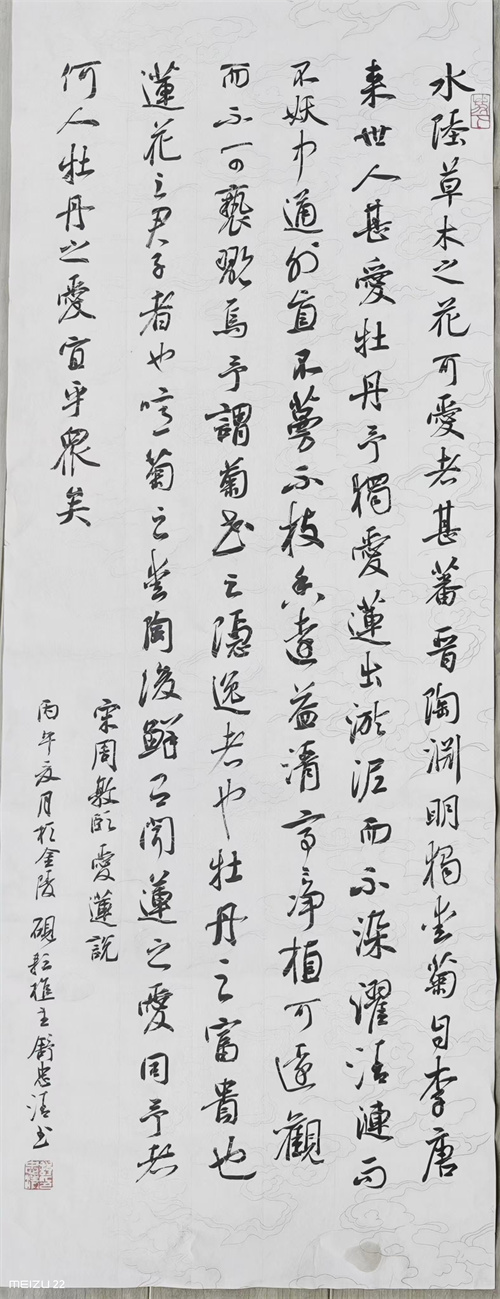 水陸草木之花可愛者甚蕃晋陶淵明獨愛菊自李唐
来世人甚愛牡丹予獨愛蓮出淤泥而不染濯清漣而
不妖中通外直不蔓不枝香遠益清亭亭净植可遠觀
而不可褻翫焉予謂菊花之隱逸者也牡丹之富貴也
蓮花之君子者也噫菊之愛陶後鮮有聞蓮之愛同予者
何人牡丹之愛宜乎眾矣
宋周敦頤愛蓮說
丙午夏月於金陵硯耘樵主舒忠清书
MEIZU 22